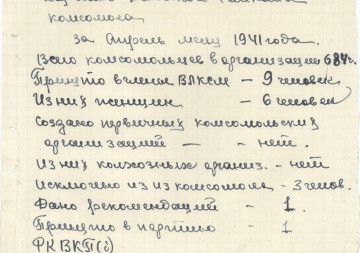 комсомола
за апрель месяц 1941 года.
Всего комсомольцев в организации 684.
Принято в члены ВЛКСМ — 9 человек
Из них женщин — 6 человек
Создано первичных комсомольских
организаций — — нет.
Из них колхозных организ. — нет
Исключено из комсомола — 3 челов.
Дано рекомендаций — 1.
Принято в партию — 1
РК ВКП(б)